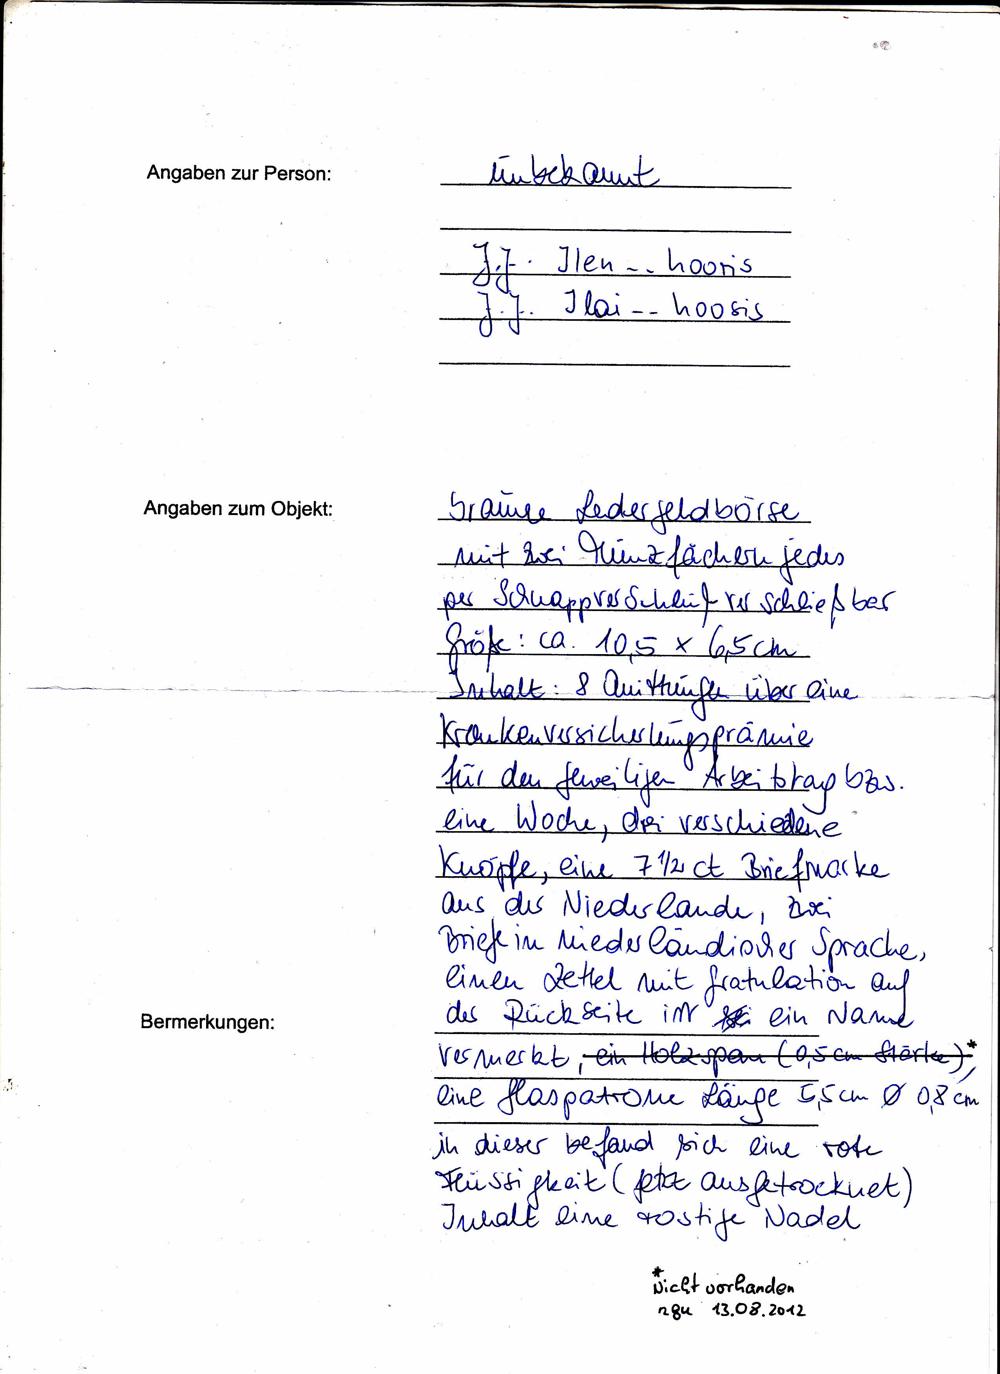 Angaben zur Person: Unbekannt
J.J. Ilen -- hooris
J.J. Ilai -- hoosis
Angaben zum Objekt: braune Ledergeldbörse
mit zwei Münzfächern jedes
per Schnappverschluß verschließbar
Größe: ca. 10,5 x 6,5cm
Inhalt: 8 Quittungen über eine
Krankenversicherungsprämie
für den jeweiligen Arbeitstag bzw.
eine Woche, drei verschiedene
Knöpfe, eine 7 1/2 ct Briefmarke
aus der Niederlande, zwei
Briefe in niederländischer Sprache,
einen Zettel mit Gratulation auf
Bermerkungen: der Rückseite ist ein Name
vermerkt, ein Holzspan (0,5cm Stärke)*,
eine Glaspatrone Länge 5,5cm Ø 0,8cm
in dieser befand sich eine rote
Flüssigkeit (jetzt ausgetrocknet)
Inhalt eine rostige Nadel
*nicht vorhanden
13.08.2012